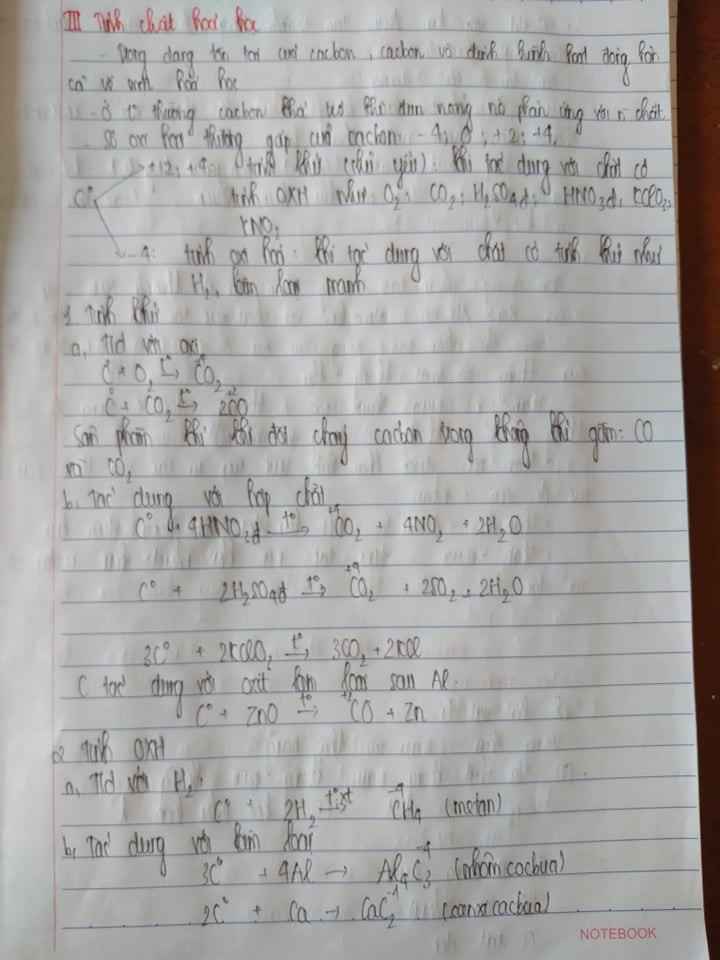 III Tính chất hoá học
- Trong dạng tồn tại của cacbon, cacbon vô định hình hoạt động hơn
cả về mặt hoá học
- Ở t° thường cacbon khá trơ khi đun nóng nó phản ứng với n chất
Số oxi hoá thường gặp của cacbon: -4; 0; +2; +4.
+2; +4: tính khử (chủ yếu): khi tác dụng với chất có
C° tính OXH như O2; CO2; H2SO4đ; HNO3đ, KClO3,
KNO3
-4: tính oxi hoá: khi tác dụng với chất có tính khử như
H2, kim loại mạnh
1 Tính khử
a, T/d với oxi
C + O2 t°→ CO2
C + CO2 t°→ 2CO
Sản phẩm khí khi đốt cháy cacbon trong không khí gồm: CO
và CO2
b, Tác dụng với hợp chất
C° + 4HNO3đ t°→ +4CO2 + 4NO2 + 2H2O
C° + 2H2SO4đ t°→ +4CO2 + 2SO2 + 2H2O
3C° + 2KClO3 t°→ 3CO2 + 2KCl
C tác dụng với oxit kim loại sau Al.
C° + ZnO t°→ +2CO + Zn
2 Tính OXH
a, T/d với H2:
C° + 2H2 t°,xt→ -4CH4 (metan)
b, Tác dụng với kim loại
3C° + 4Al → Al4C3-4 (nhôm cacbua)
2C° + Ca → CaC2-1 (canxi cacbua)
NOTEBOOK